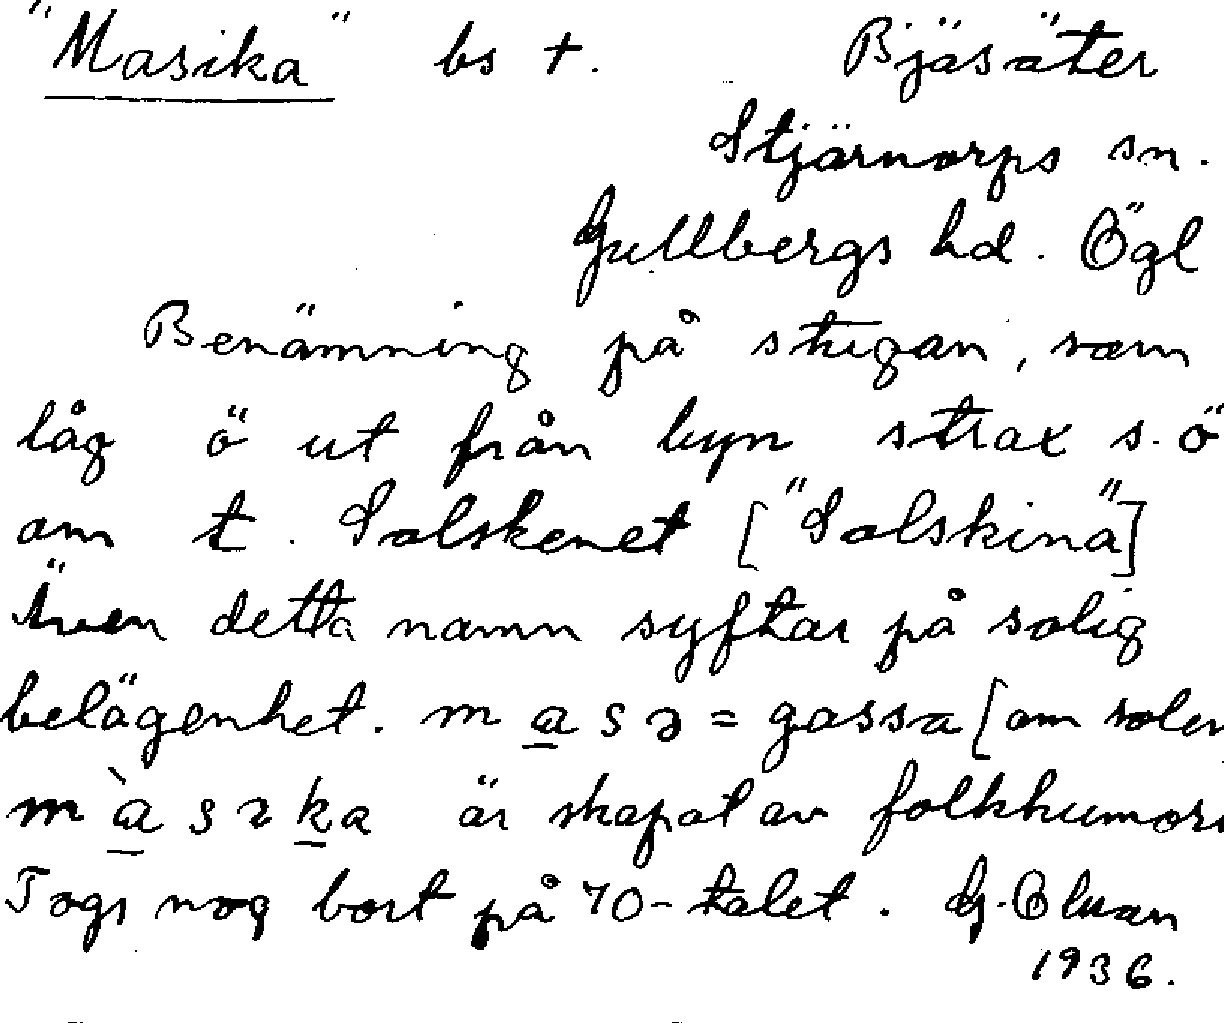 "Masika" bs †. Bjäsäter
Stjärnorps sn.
Gullbergs hd. Ögl
Benämning på stugan, som
låg ö ut från byn strax s.ö
om t. Solskenet ["Solskinä"]
Även detta namn syftar på solig
belägenhet. m a s ə = gassa [om solen
m à s ɿ k a är skapat av folkhumorn
Togs nog bort på 70-talet. G.
1936.